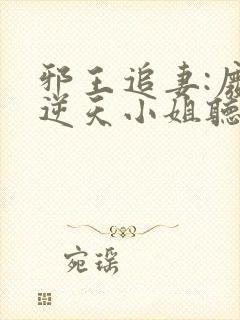 邪王追妻:廢
逆天小姐聽
宛瑶